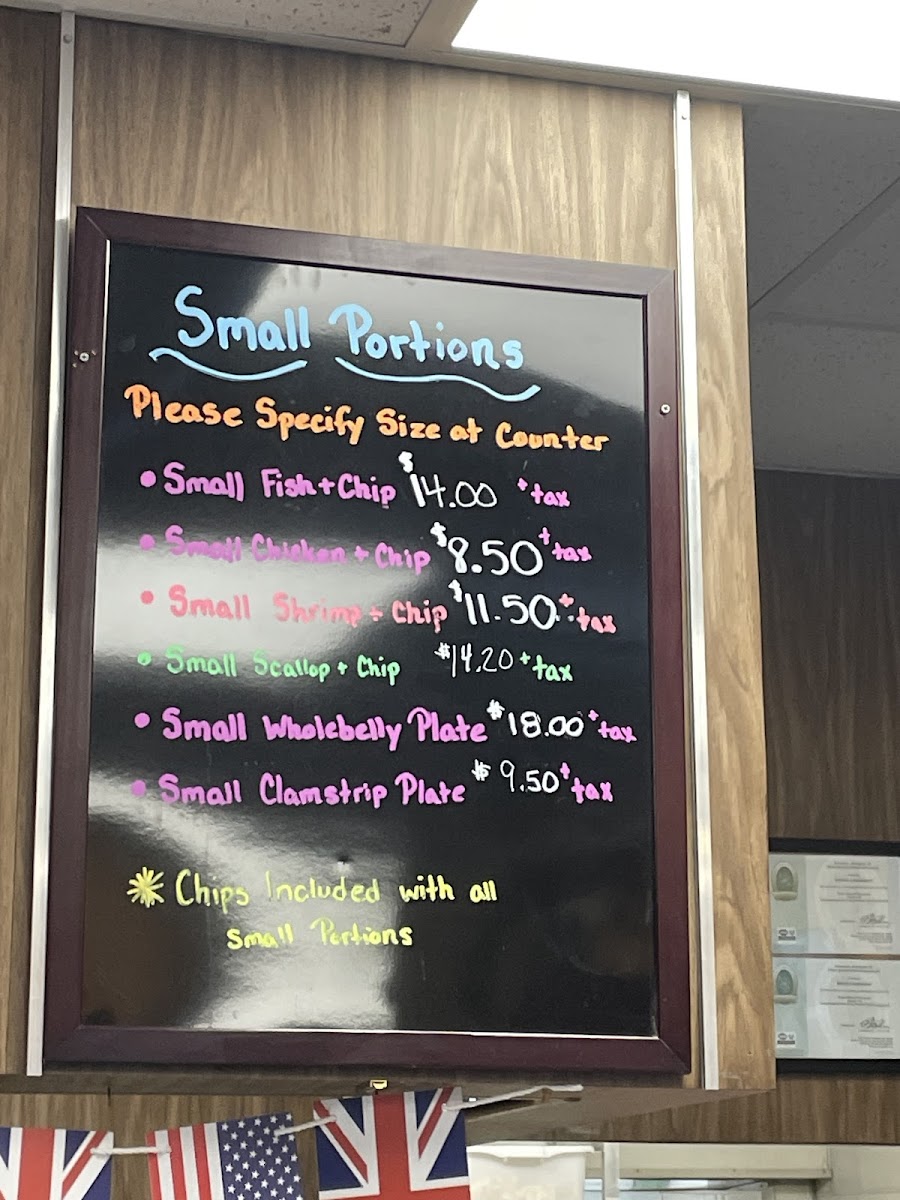 Small Portions
Please Specify Size at Counter
• Small Fish + Chip $14.00 + tax
• Small Chicken + Chip $8.50 + tax
• Small Shrimp + Chip $11.50 + tax
• Small Scallop + Chip $14.20 + tax
• Small Wholebelly Plate $18.00 + tax
• Small Clamstrip Plate $9.50 + tax
* Chips Included with all
Small Portions